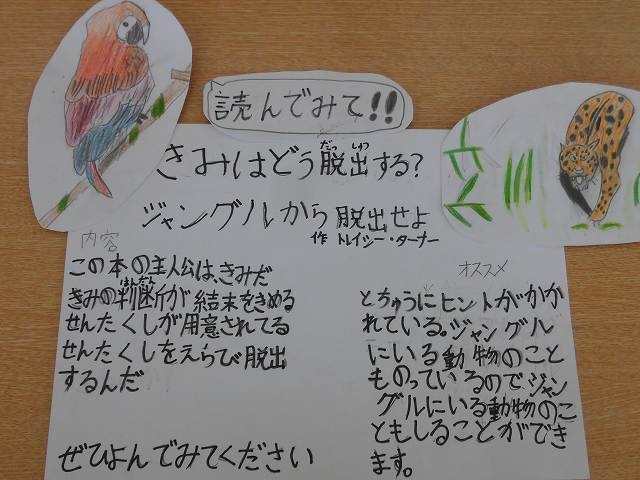 読んでみて!!
きみはどう脱出する?
だっ しゅつ
ジャングルから脱出せよ
作 トレイシー・ターナー
内容
この本の主人公は、きみだ
きみの判断が結末をきめる
はんだん
せんたくしが用意されてる
せんたくしをえらび脱出
するんだ
ぜひよんでみてください
オススメ
とちゅうにヒントがかか
れている。ジャングル
にいる動物のこと
ものっているのでジャン
グルにいる動物のこ
ともしることができ
ます。